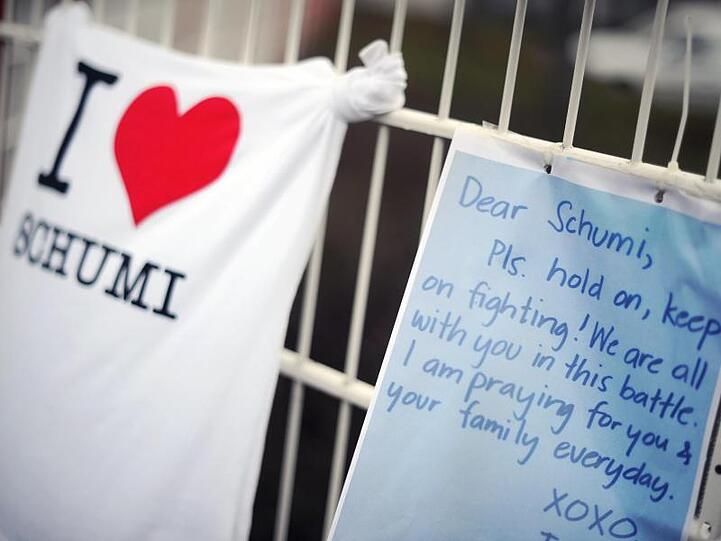 I
SCHUMI
Dear Schumi,
Pls. hold on, keep
on fighting! We are all
with you in this battle.
I am praying for you &
your family everyday.
XOXO